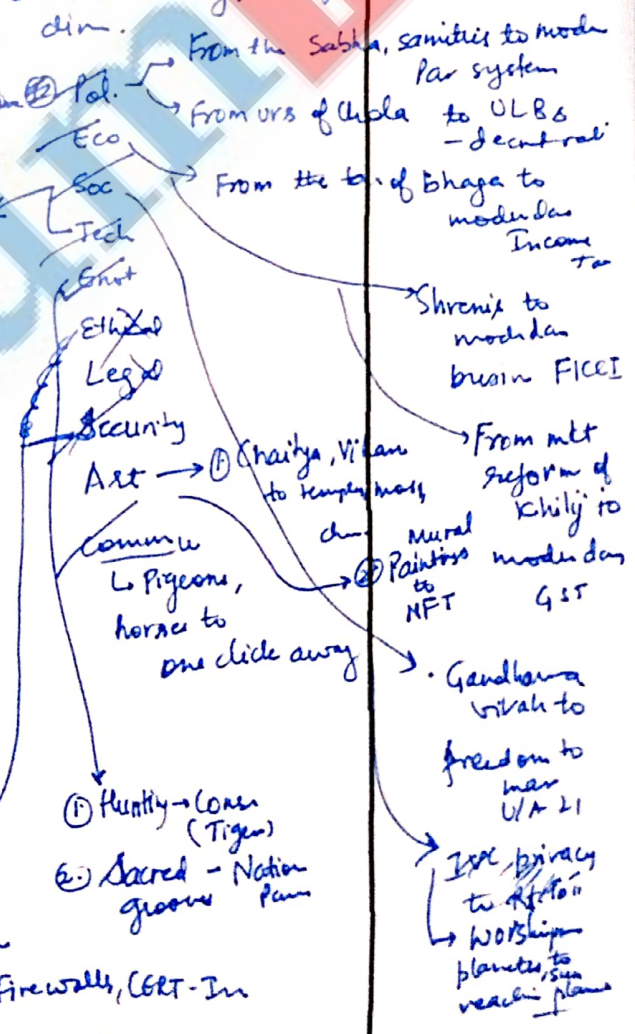 dim.
Pol.
From the Sabha, samitis to modn
Par system
From urs of Chola to ULBs
- decntrali
Eco
Soc
From the ta. of Bhaga to
modndas
Income
Tax
Tech
Envt
Shrenis to
modndas
busin FICCI
Ethical
Legal
Security
From mkt
reform of
Khilji to
modndas
GST
Art → ① Chaitya, Vihan
to temples, mosq,
chu
② Mural
Paintings
to
NFT
Commu
↳ Pigeons,
horses to
one click away
Gandharva
vivah to
freedom to
marr
U/A 21
① Hunting → Conse
(Tiger)
② Sacred - Nation
grooves Parks
privacy
to
↳ Worship
planets, sun to
reachin plane
Firewalls, CERT-In